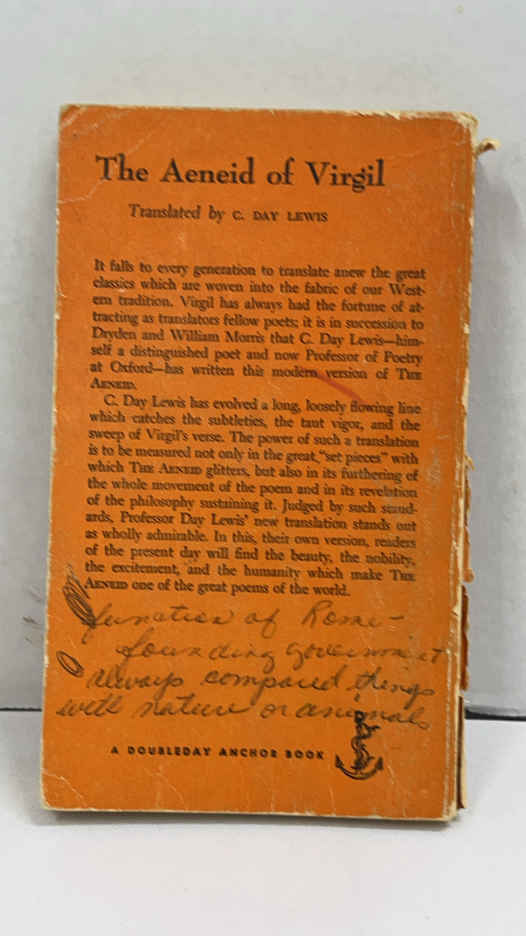 The Aeneid of Virgil
Translated by C. DAY LEWIS
It falls to every generation to translate anew the great
classics which are woven into the fabric of our West-
ern tradition. Virgil has always had the fortune of at-
tracting as translators fellow poets; it is in succession to
Dryden and William Morris that C. Day Lewis—him-
self a distinguished poet and now Professor of Poetry
at Oxford—has written this modern version of THE
AENEID.
C. Day Lewis has evolved a long, loosely flowing line
which catches the subtleties, the taut vigor, and the
sweep of Virgil's verse. The power of such a translation
is to be measured not only in the great "set pieces" with
which THE AENEID glitters, but also in its furthering of
the whole movement of the poem and in its revelation
of the philosophy sustaining it. Judged by such stand-
ards, Professor Day Lewis' new translation stands out
as wholly admirable. In this, their own version, readers
of the present day will find the beauty, the nobility,
the excitement, and the humanity which make THE
AENEID one of the great poems of the world.
function of Rome -
founding government
always compared things
with nature or animals
A DOUBLEDAY ANCHOR BOOK